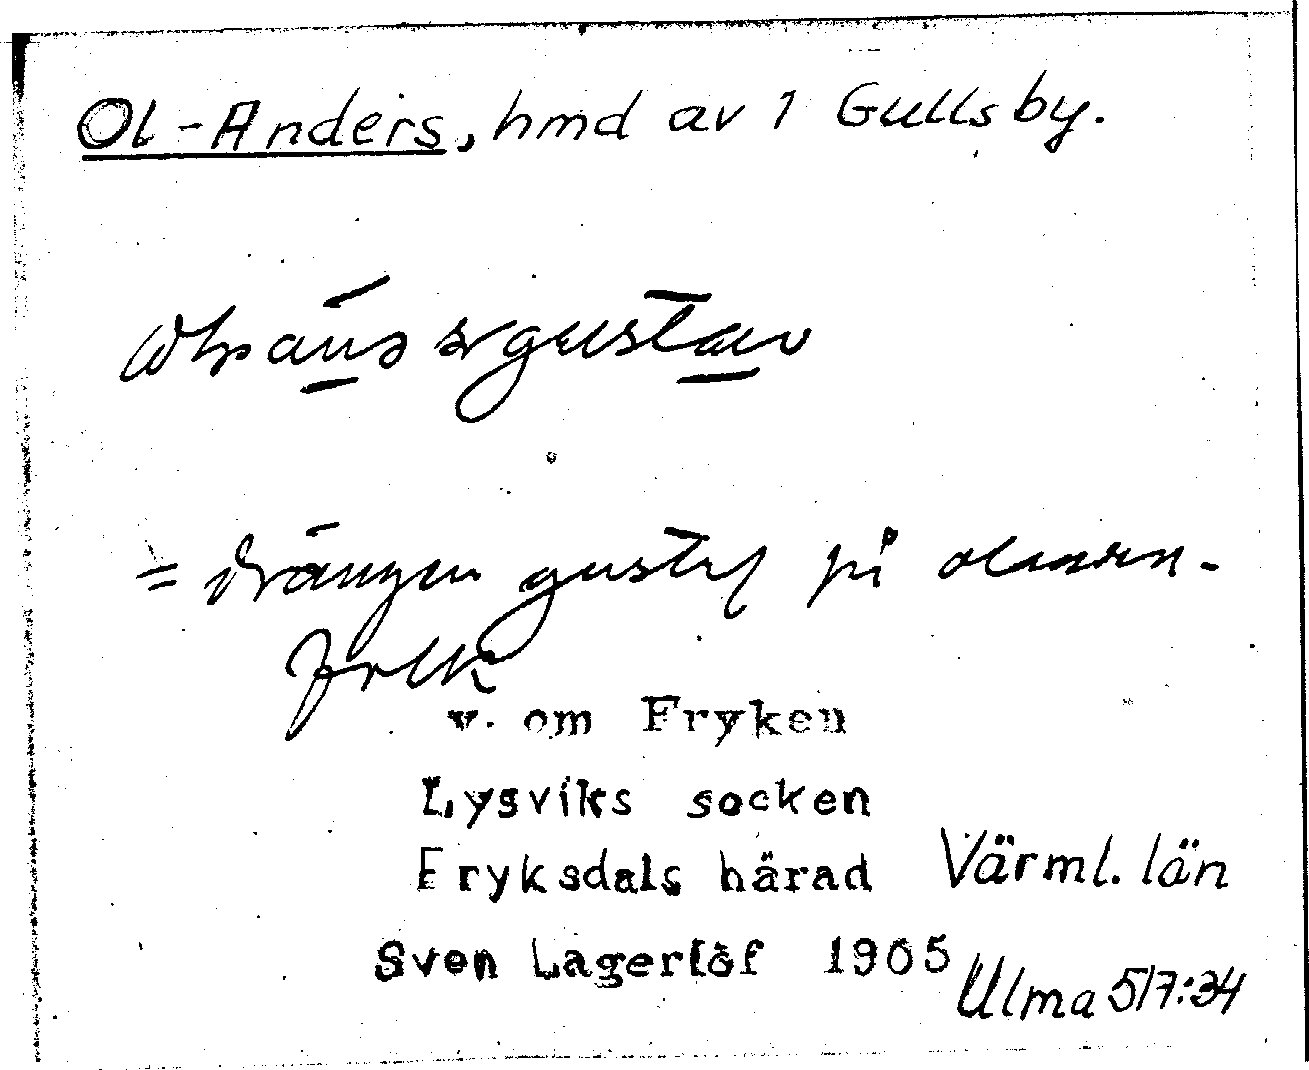 Ol-Anders, hmd av 1 Gullsby.
= drängen gustaf på
folk
v. om Fryken
Lysviks socken
Fryksdals härad Värml. län
Sven Lagerlöf 1905 Ulma 517:34